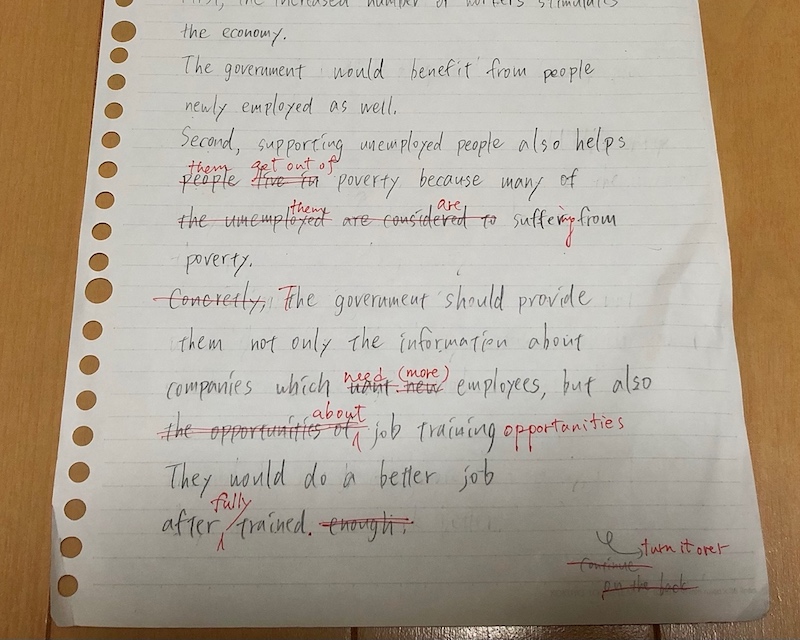 First, the increased number of workers stimulates
the economy.
The government would benefit from people
newly employed as well.
Second, supporting unemployed people also helps
them get out of
people live in poverty because many of
them are
the unemployed are considered to suffering from
poverty.
Concretly, The government should provide
them not only the information about
need (more)
companies which want new employees, but also
about
the opportunities of job training opportunities
They would do a better job
fully
after trained. enough.
turn it over
Continue
on the back